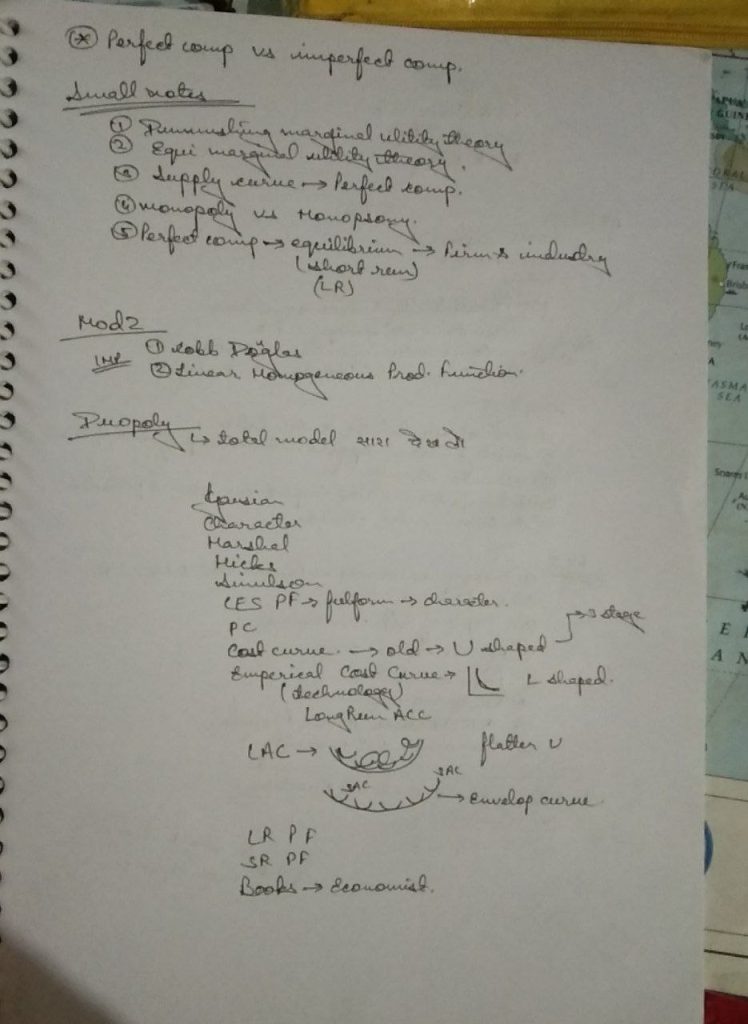 * Perfect comp vs imperfect comp.
Small notes
① Dimnishing marginal utility theory
② Equi marginal utility theory.
③ Supply curve → Perfect comp.
④ monopoly vs Monopsony.
⑤ Perfect comp → equilibrium → Firm & industry
(short run)
(LR)
Mod 2
IMP ① Cobb Doglas
② Linear Homogeneous Prod. Function.
Duopoly
↳ total model सारा देख लो
Character
Marshal
Hicks
CES PF → fulform → character.
PC
Cost curve. → old → U shaped → 3 stage
Emperical Cost Curve → L shaped.
(technology)
Long Run ACC
LAC → flatter U
SAC SAC
→ Envelop curve
LR PF
SR PF
Books → Economist.
SEA
ASMA
SEA